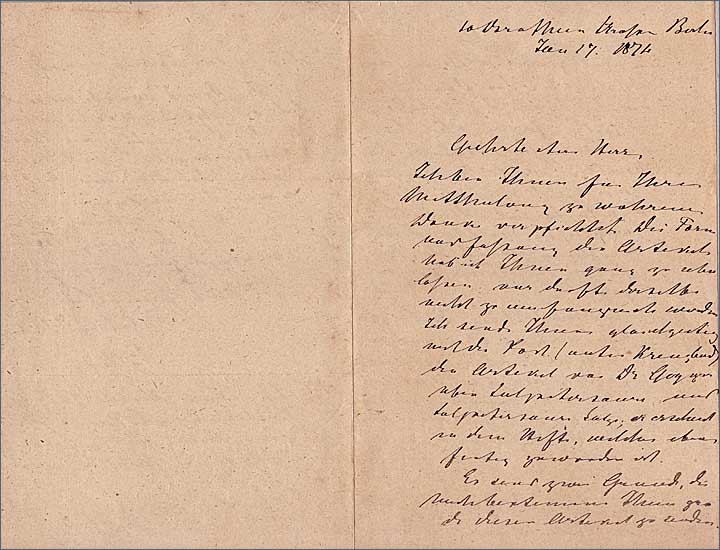 10 Dorotheen Strasse Berlin
Jan 17. 1874
Geehrter Herr,
Ich bin Ihnen für Ihre
Mittheilung zu wahrem
Danke verpflichtet. Die Form
und Fassung des Artikels
habe ich Ihnen ganz zu über
lassen nur dürfte derselbe
nicht zu umfangreich werden
Ich sende Ihnen gleichzeitig
mit der Post (unter Kreuzband)
den Artikel von Dr
über Salpetersäure und
salpetersaure Salze, er erscheint
in dem Heft, welches eben
fertig geworden ist.
Es sind zwei Gründe, die
mich bestimmen Ihnen
diesen Artikel zu senden.